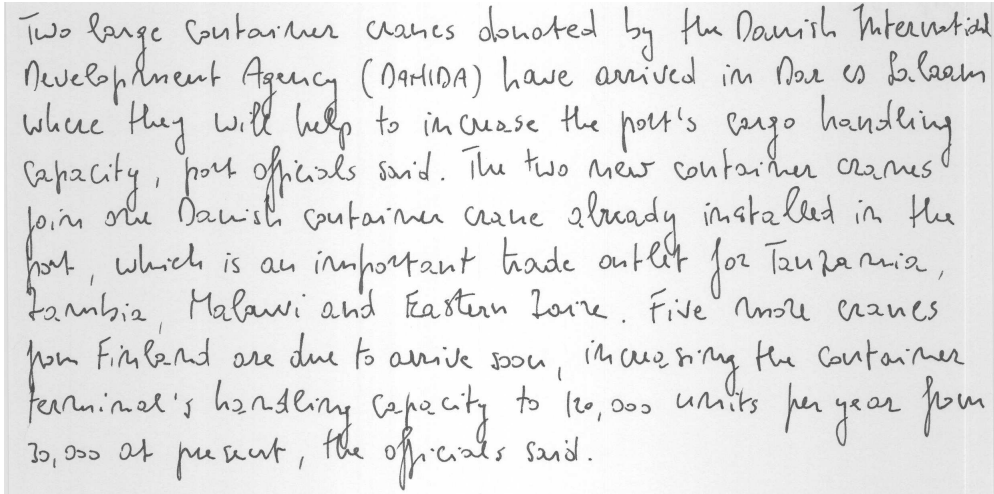 Two large container cranes donated by the Danish International
Development Agency (DANIDA) have arrived in Dar es Salaam
where they will help to increase the port's cargo handling
capacity, port officials said. The two new container cranes
join one Danish container crane already installed in the
port, which is an important trade outlet for Tanzania,
Zambia, Malawi and Eastern Zaire. Five more cranes
from Finland are due to arrive soon, increasing the container
terminal's handling capacity to 120,000 units per year from
30,000 at present, the officials said.